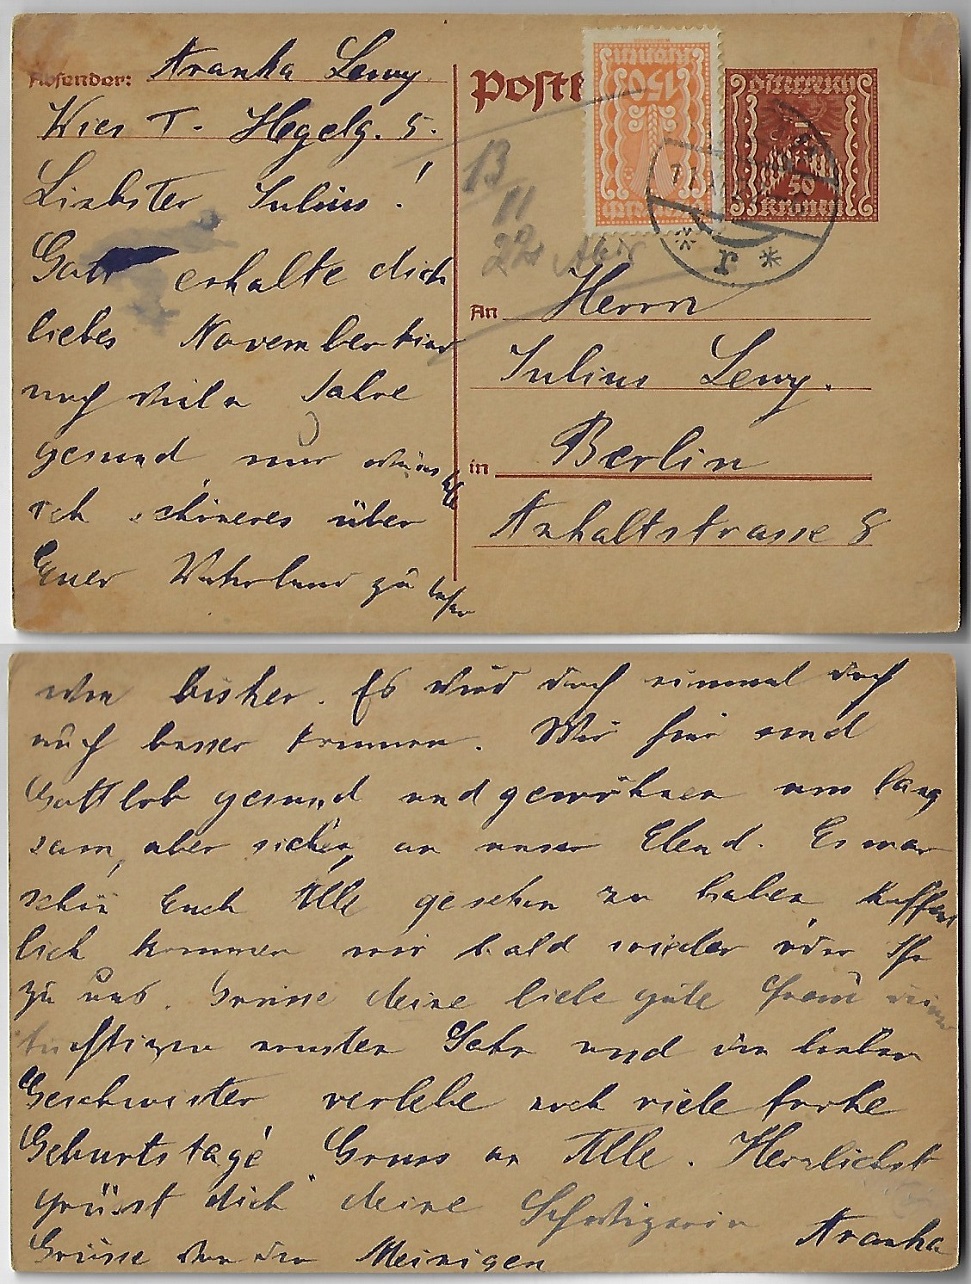 Absender: Aranka Lewy
Wien I. Hegelg. 5.
Liebster Julius!
Gott erhalte dich
liebes Novemberkind
noch viele Jahre
gesund nur wünsch
ich schöneres über
Euer Vaterland zu
wie bisher. Es wird doch einmal doch
auch besser kommen. Wir hier sind
Gottlob gesund und gewöhnen uns lang
sam, aber sicher, an unser Elend. Es war
schön Euch Alle gesehen zu haben hoffent
lich kommen wir bald wieder oder Ihr
zu uns. Grüsse deine liebe gute Frau deinen
und die lieben
Geschwister verlebe noch viele frohe
Geburtstage Gruss an Alle. Herzlichst
grüsst dich deine Schwägerin Aranka
Grüsse von den Meinigen
Postk
150
Kronen
Österreich
50
Kronen
13
11
22
An Herrn
Julius Lewy.
in Berlin
Anhaltstrasse 8